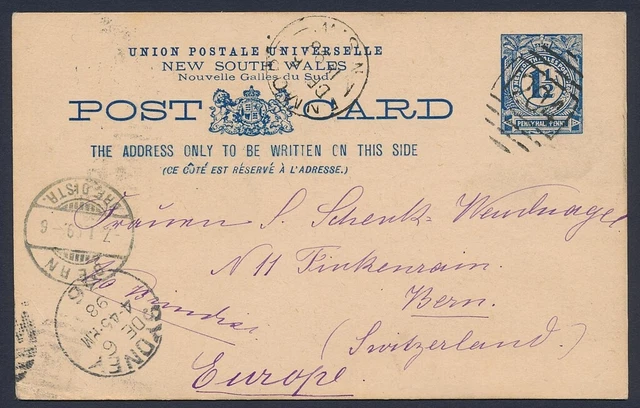 UNION POSTALE UNIVERSELLE
NEW SOUTH WALES
Nouvelle Galles du Sud
POST CARD
THE ADDRESS ONLY TO BE WRITTEN ON THIS SIDE
(CE CÔTÉ EST RÉSERVÉ À L'ADRESSE.)
1½
PENNY HALF PENNY
BERN
7. I. 99.-6
Frauen S. Schenk-Wendnagel
N 11 Finkenrain.
Bern.
Via Brindisi
(Switzerland.)
Europe.
SYDNEY
98